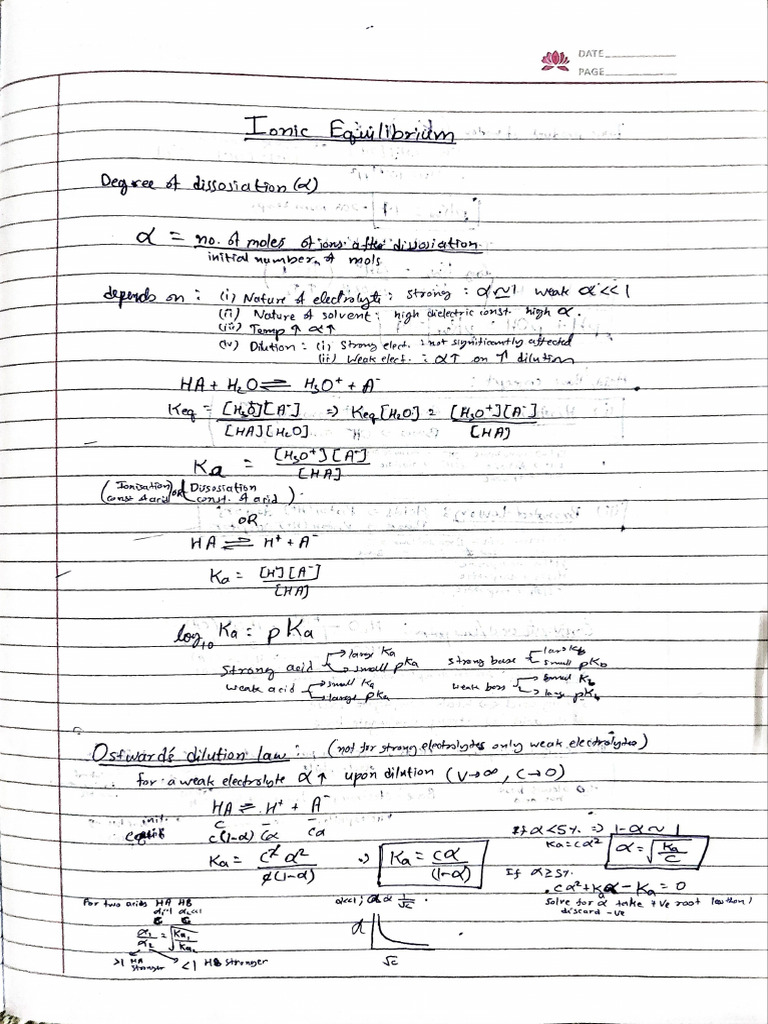 DATE
PAGE
Ionic Equilibrium
Degree of dissosiation (α)
α = no. of moles of ions after dissosiation
initial number of mols
depends on : (i) Nature of electrolyte : strong : α ≃ 1 weak α << 1
(ii) Nature of solvent : high dielectric const. high α.
(iii) Temp ↑ α ↑
(iv) Dilution : (i) Strong elect. : not significantly affected
(ii) Weak elect. : α↑ on ↑ dilution
HA + H₂O ⇌ H₃O⁺ + A⁻
Keq = [H₃O⁺][A⁻] / [HA][H₂O] ⇒ Keq [H₂O] = [H₃O⁺][A⁻] / [HA]
Ka = [H₃O⁺][A⁻] / [HA]
(Ionisation const of acid) OR (Dissosiation const. of acid)
OR
HA ⇌ H⁺ + A⁻
Ka = [H⁺][A⁻] / [HA]
log₁₀ Ka = pKa
Strong acid → large Ka → small pKa strong base → large Kb → small pKb
weak acid → small Ka → large pKa weak base → small Kb → large pKb
Ostward's dilution law : (not for strong electrolytes only weak electrolytes)
for a weak electrolyte α↑ upon dilution (V→∞, C→0)
HA ⇌ H⁺ + A⁻
init. C - -
c(1-α) Cα Cα
If α < 5% ⇒ 1-α ~ 1
Ka = cα² α = √(Ka/C)
Ka = c²α² / c(1-α) ⇒ Ka = cα / (1-α)
If α ≥ 5%
cα² + Kaα - Ka = 0
solve for α take +ve root
discard -ve
For two acids HA HB
α₁/α₂ = √(Ka₁/Ka₂)
>1 HA stronger <1 HB stronger
α<<1; α ∝ 1/√c
α
√c